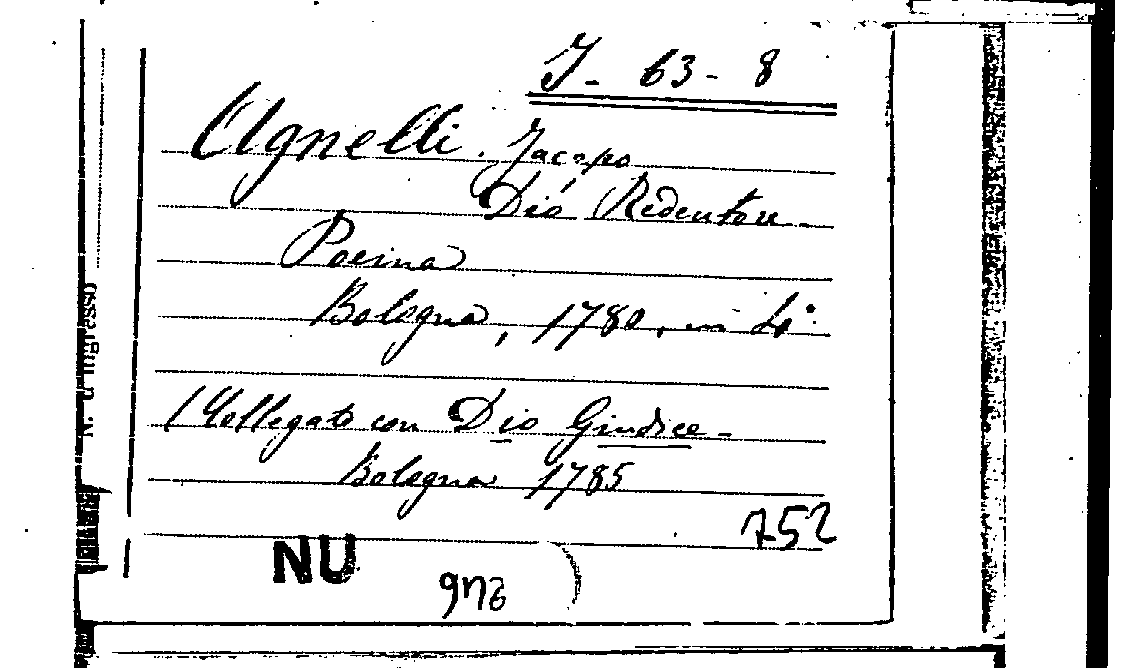 J - 63 - 8
Agnelli. Jacopo
Dió Redentore
Poema
Bologna, 1780, in 4°
(Collegato con Dio Giudice -
Bologna 1785
752
NU
)
N. d'ingresso